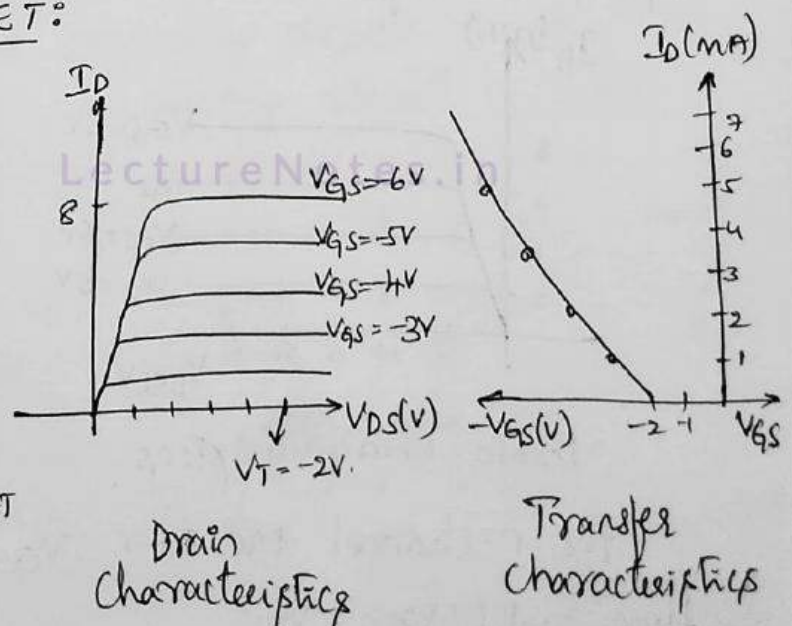 ET:
ID
8
LectureNotes.in
VGS=-6V
VGS=-5V
VGS=-4V
VGS=-3V
VDS(V)
VT=-2V.
T
Drain
Characteristics
ID(mA)
7
6
5
4
3
2
1
-VGS(V)
-2
-1
VGS
Transfer
Characteristics